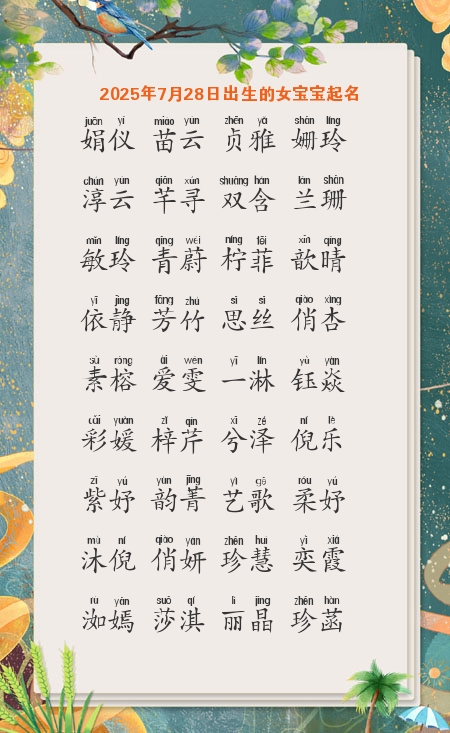 2025年7月28日出生的女宝宝起名
juān yí miáo yún zhēn yǎ shān líng
娟仪 苗云 贞雅 姗玲
chún yún qiān xún shuāng hán lán shān
淳云 芊寻 双含 兰珊
mǐn líng qīng wèi níng fēi xīn qíng
敏玲 青蔚 柠菲 歆晴
yī jìng fāng zhú sī sī qiào xìng
依静 芳竹 思丝 俏杏
sù róng ài wén yī lín yù yàn
素榕 爱雯 一淋 钰焱
cǎi yuàn zǐ qín xī zé ní lè
彩媛 梓芹 兮泽 倪乐
zǐ yú yùn jīng yì gē róu yú
紫妤 韵菁 艺歌 柔妤
mù ní qiào yán zhēn huì yì xiá
沐倪 俏妍 珍慧 奕霞
rù yān suō qí lì jīng zhēn hàn
洳嫣 莎淇 丽晶 珍菡